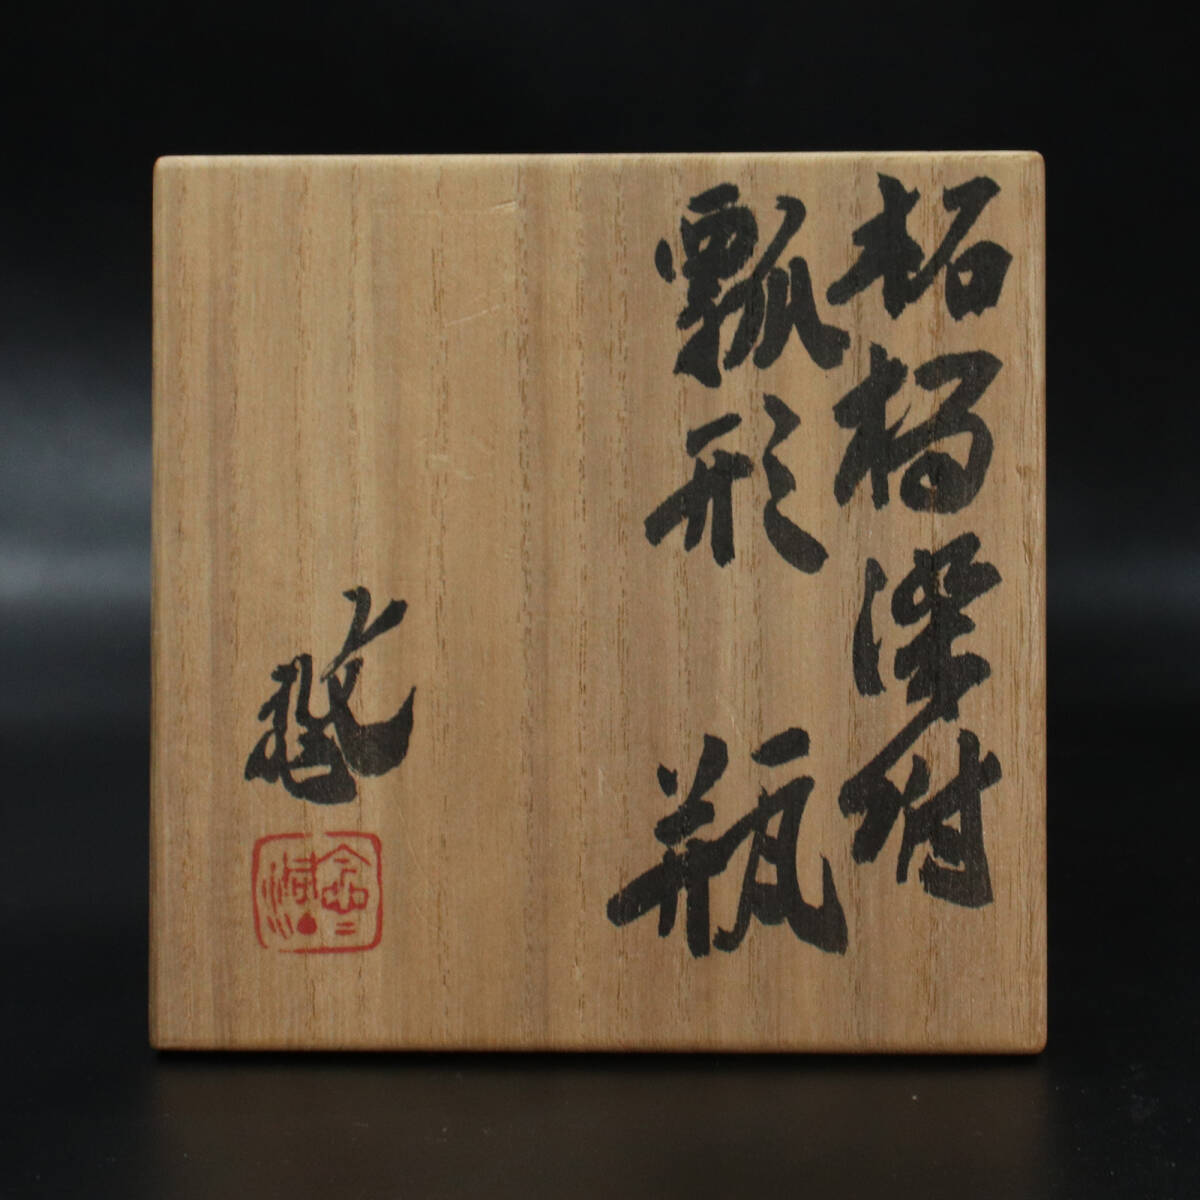 柘榴染附
瓢形瓶